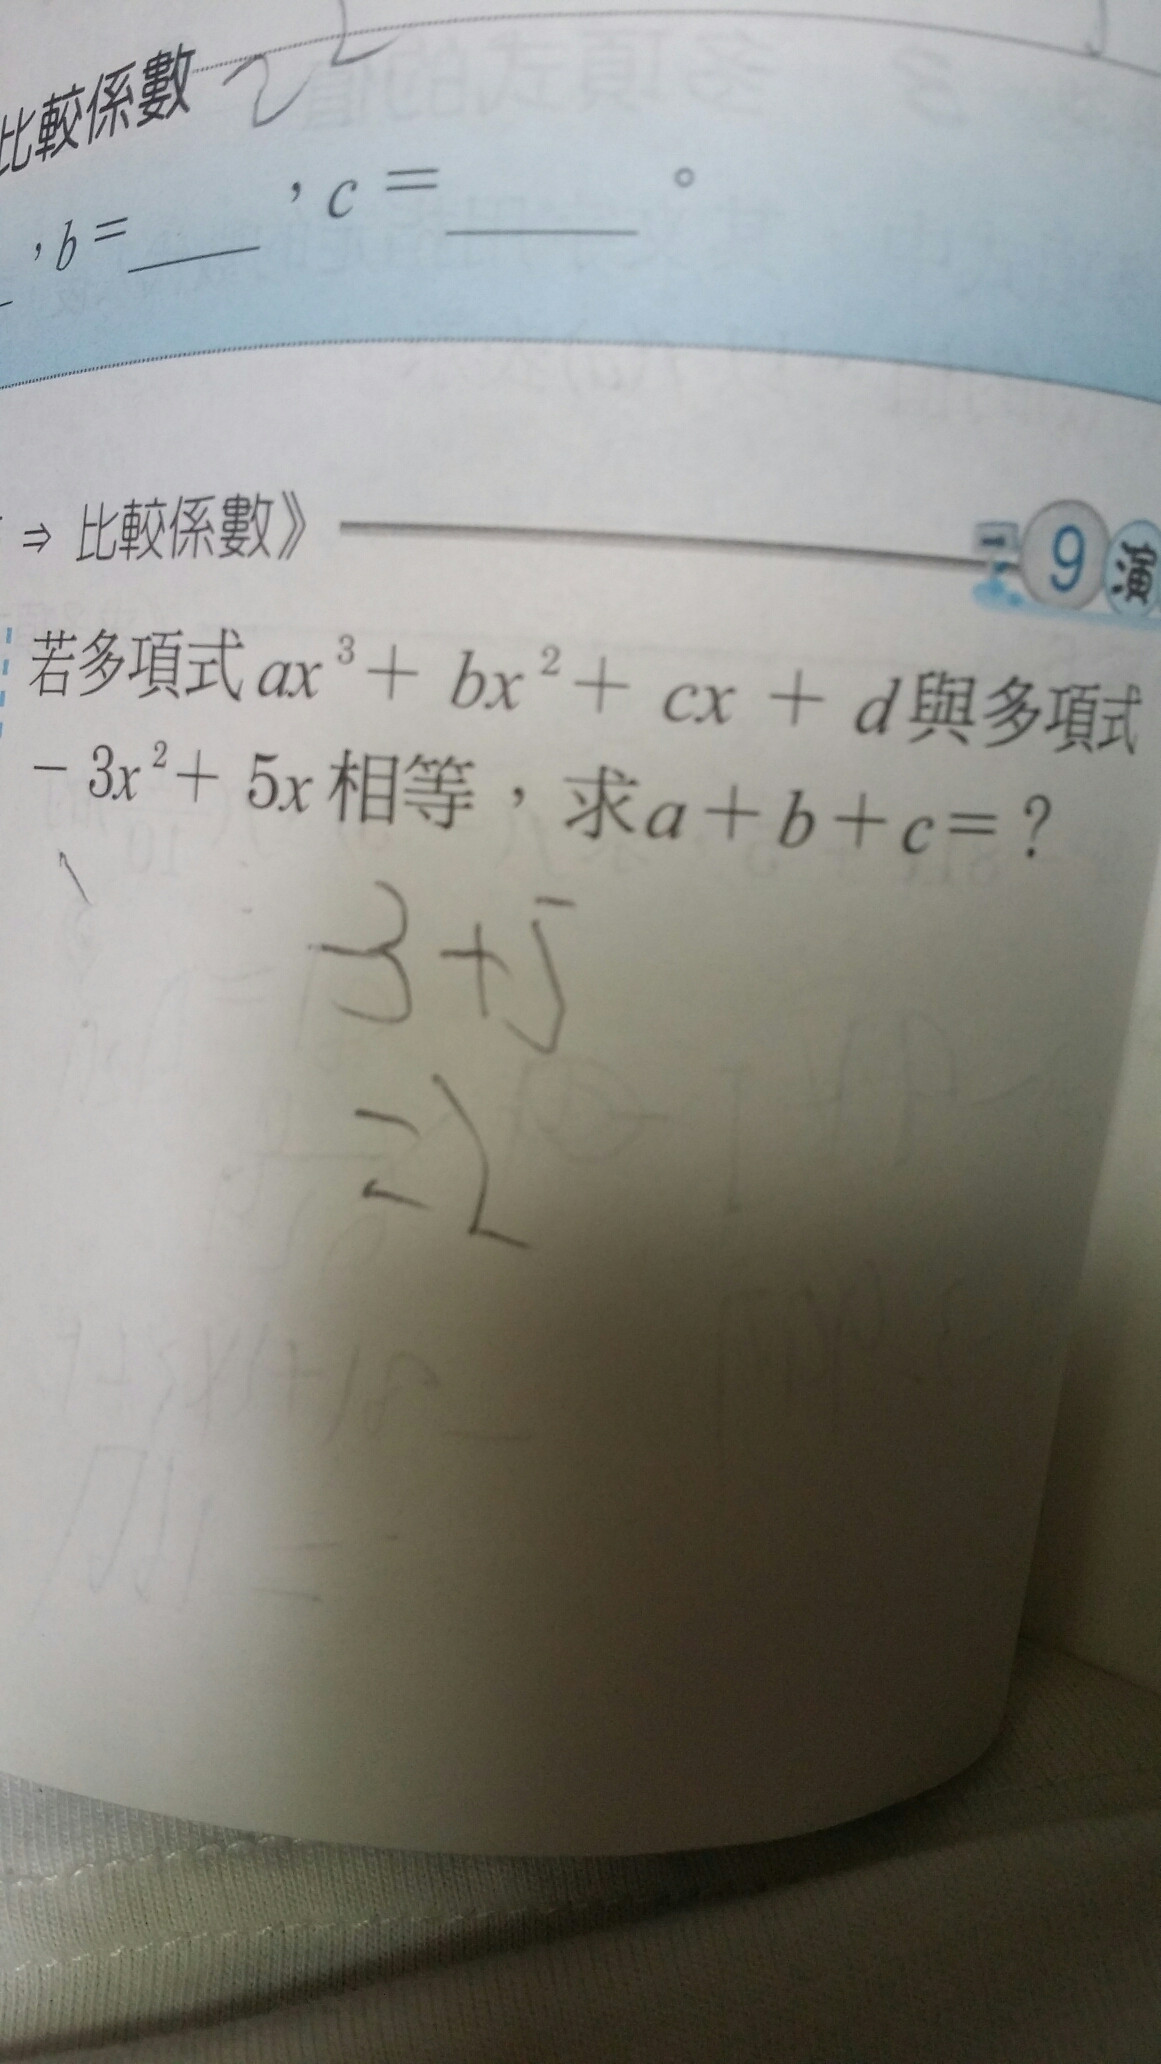 比較係數
，b=____，c=____。
⇒ 比較係數》
9 演
若多項式 ax³ + bx² + cx + d 與多項式
-3x² + 5x 相等，求 a + b + c = ?
3+5
=2